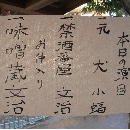 本日の演目
一元犬 小蝠
一禁酒番屋 文治
お仲入り
一味噌蔵 文治